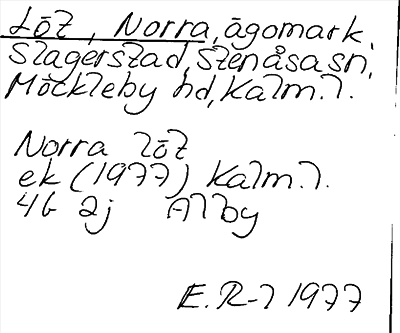 Löt, Norra, ägomark,
Slagerstad, Stenåsa sn,
Möckleby hd, Kalm. l.
Norra löt
ek (1977) Kalm. l.
4G 2j Alby
E. R-l 1977